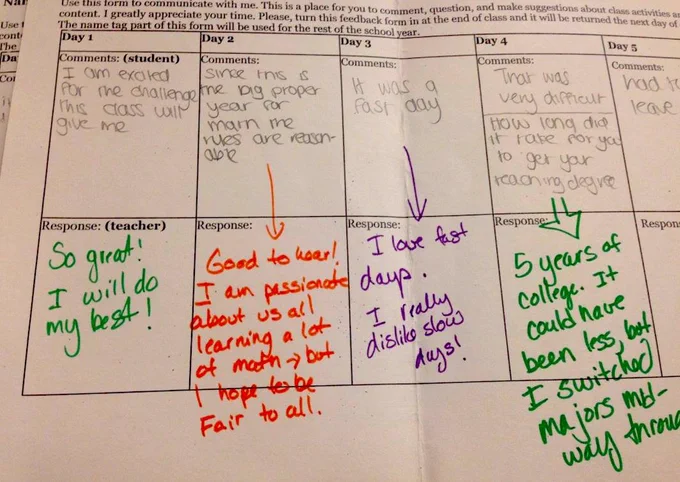 Nam
Use this form to communicate with me. This is a place for you to comment, question, and make suggestions about class activities
content. I greatly appreciate your time. Please, turn this feedback form in at the end of class and it will be returned the next day of
The name tag part of this form will be used for the rest of the school year.
Day 1 Day 2 Day 3 Day 4 Day 5
Comments: (student)
I am excited
for the challenge
this class will
give me
Comments:
Since this is
the big proper
year for
math the
rules are reason-
able
Comments:
It was a
fast day
Comments:
That was
very difficult
How long did
it take for you
to get your
teaching degree
Comments:
had to
leave
Response: (teacher)
So great!
I will do
my best!
Response:
Good to hear!
I am passionate
about us all
learning a lot
of math → but
I hope to be
Fair to all.
Response:
I love fast
days.
I really
dislike slow
days!
Response:
5 years of
college. It
could have
been less, but
I switched
majors mid-
way throu
Respon